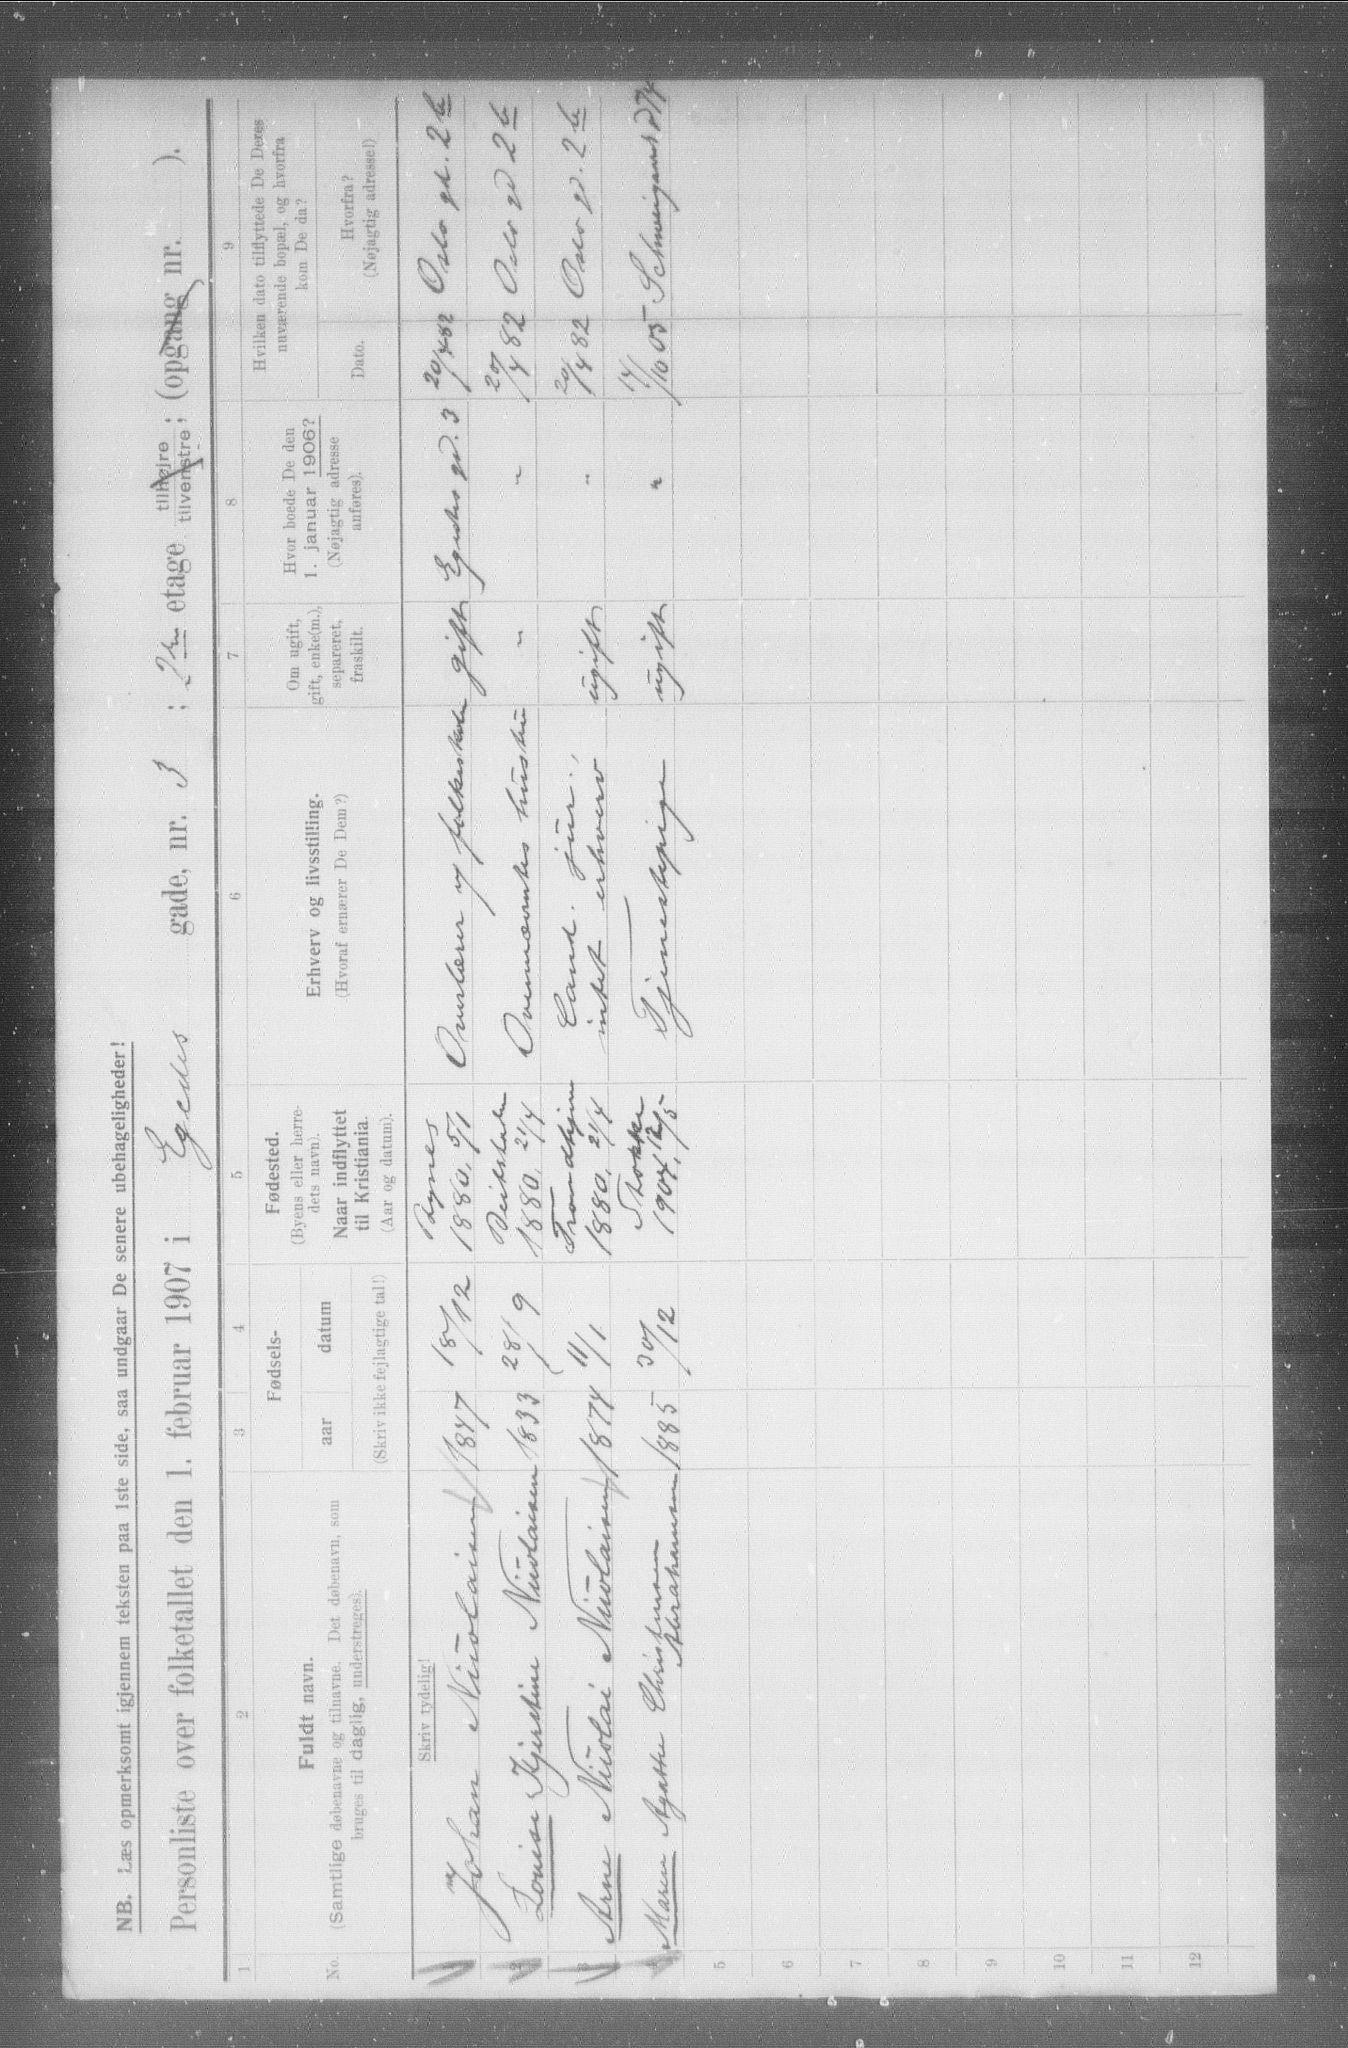 NB. Læs opmerksomt igjennem teksten paa 1ste side, saa undgaar De senere ubehageligheder!
Personliste over folketallet den 1. februar 1907 i Egedes gade, nr. 3 ; 2den etage tilhøjre tilvenstre ; (opgang nr. ).
1 2 3 4 5 6 7 8 9
No.
Fuldt navn.
(Samtlige døbenavne og tilnavne. Det døbenavn, som
bruges til daglig, understreges).
Fødsels-
aar datum
(Skriv ikke fejlagtige tal!)
Fødested.
(Byens eller herre-
dets navn).
Naar indflyttet
til Kristiania.
(Aar og datum).
Erhverv og livsstilling.
(Hvoraf ernærer De Dem?)
Om ugift,
gift, enke(m.),
separeret,
fraskilt.
Hvor boede De den
1. januar 1906?
(Nøjagtig adresse
anføres).
Hvilken dato tilflyttede De Deres
nuværende bopæl, og hvorfra
kom De da?
Dato.
Hvorfra?
(Nøjagtig adresse!)
Skriv tydelig!
Johan Nicolaisen 1847 18/12 Bynes 1880. 5/1 Overlærer v folkeskolen gift Egedes gd. 3 20/4 82 Oslo gd. 2 b
2 Louise Kjerstine Nicolaisen 1833 28/9 1880. 21/4 hustru " " 20/4 82 Oslo gd 2 b
3 Arne Nicolai Nicolaisen 1874 11/1 Trondhjem 1880. 21/4 Cand. jur., intet erhverv ugift " 20/4 82 Oslo gd. 2 b
4 Maren Agathe Christensen Abrahamsen 1885 30/12 Stokke 1904. 12/5 Tjenestepige ugift " 14/10 05 Schweigaardsgd 74
5
6
7
8
9
10
11
12